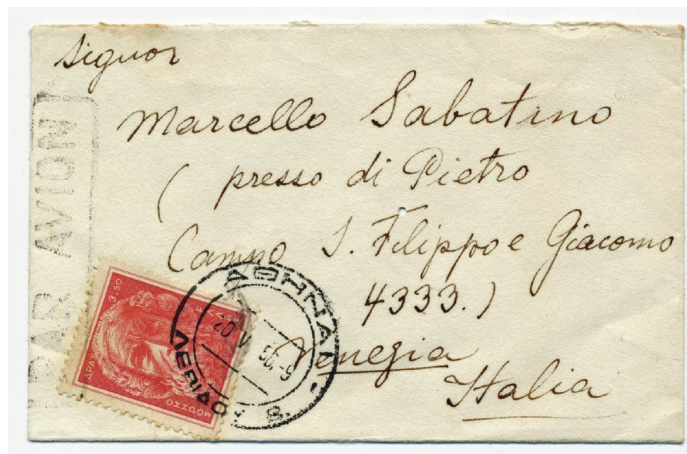 Signor
Marcello Sabatino
( presso di Pietro
Campo S. Filippo e Giacomo
4333.)
Venezia
Italia
PAR AVION
ΑΘΗΝΑΙ
20 V 56.-9
3.50